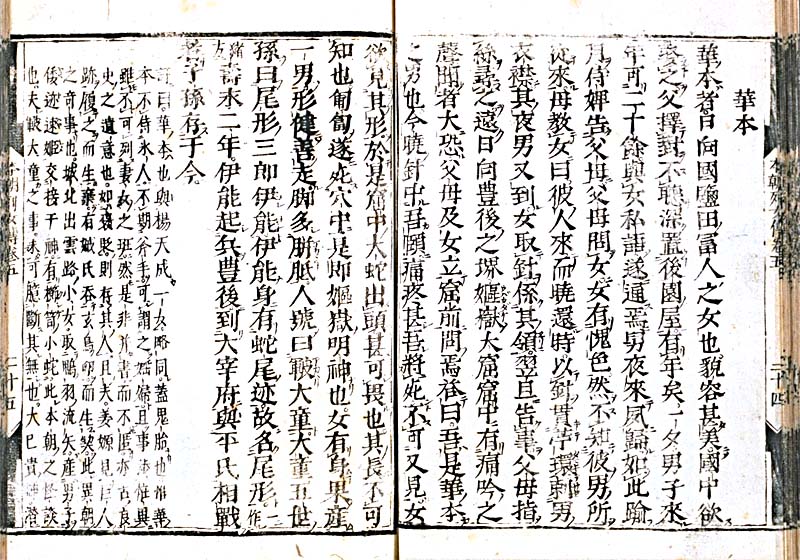 華本
華本者日向國鹽田富人之女也貌容甚美國中欲
娶之父擇對不聽深置後園屋有年矣一夕男子來
年可二十餘與女私語遂通焉男夜來夙歸如此踰
月侍婢告父母父母問女女有愧色然不知彼男所
從來母教女曰彼人來而曉還時以針貫苧環刺男
衣襟其夜男又到女取針係其領翌旦告事父母指
絲尋之遠日向豐後之堺嫗嶽大窟窟中有痛吟之
聲聞者大恐父母及女立窟前問焉答曰吾是華本
之男也今曉針中吾頤痛疼甚吾將死不可又見女
二十四
欲見其形於是窟中大蛇出頭甚可畏也其長不可
知也匍匐遂死穴中是即嫗嶽明神也女有身果產
一男形健善走脚多胼胝人號曰皸大童大童五世
孫曰尾形三郎伊能伊能身有蛇尾迹故名尾形作
緒方壽永二年伊能起兵豐後到大宰府與平氏相戰
子孫存于今
曰華本也與楊天成一女略同蓋鬼胎也惟華
本不待永人不期
雖不可列妻之班然是非並書而不匿亦古良
史之遺意也如褒姒則有其人且夫姜嫄見巨人
跡履之而生棄有娀氏吞玄鳥卵而生契此異朝
之奇事也城北出雲路小女取鴨羽流矢產男子
倭迹迹姬交接于神有櫛笥小蛇此本朝之怪談
也夫皸大童之事未可臆斷其無也大己貴神
本朝列女傳卷五
二十五